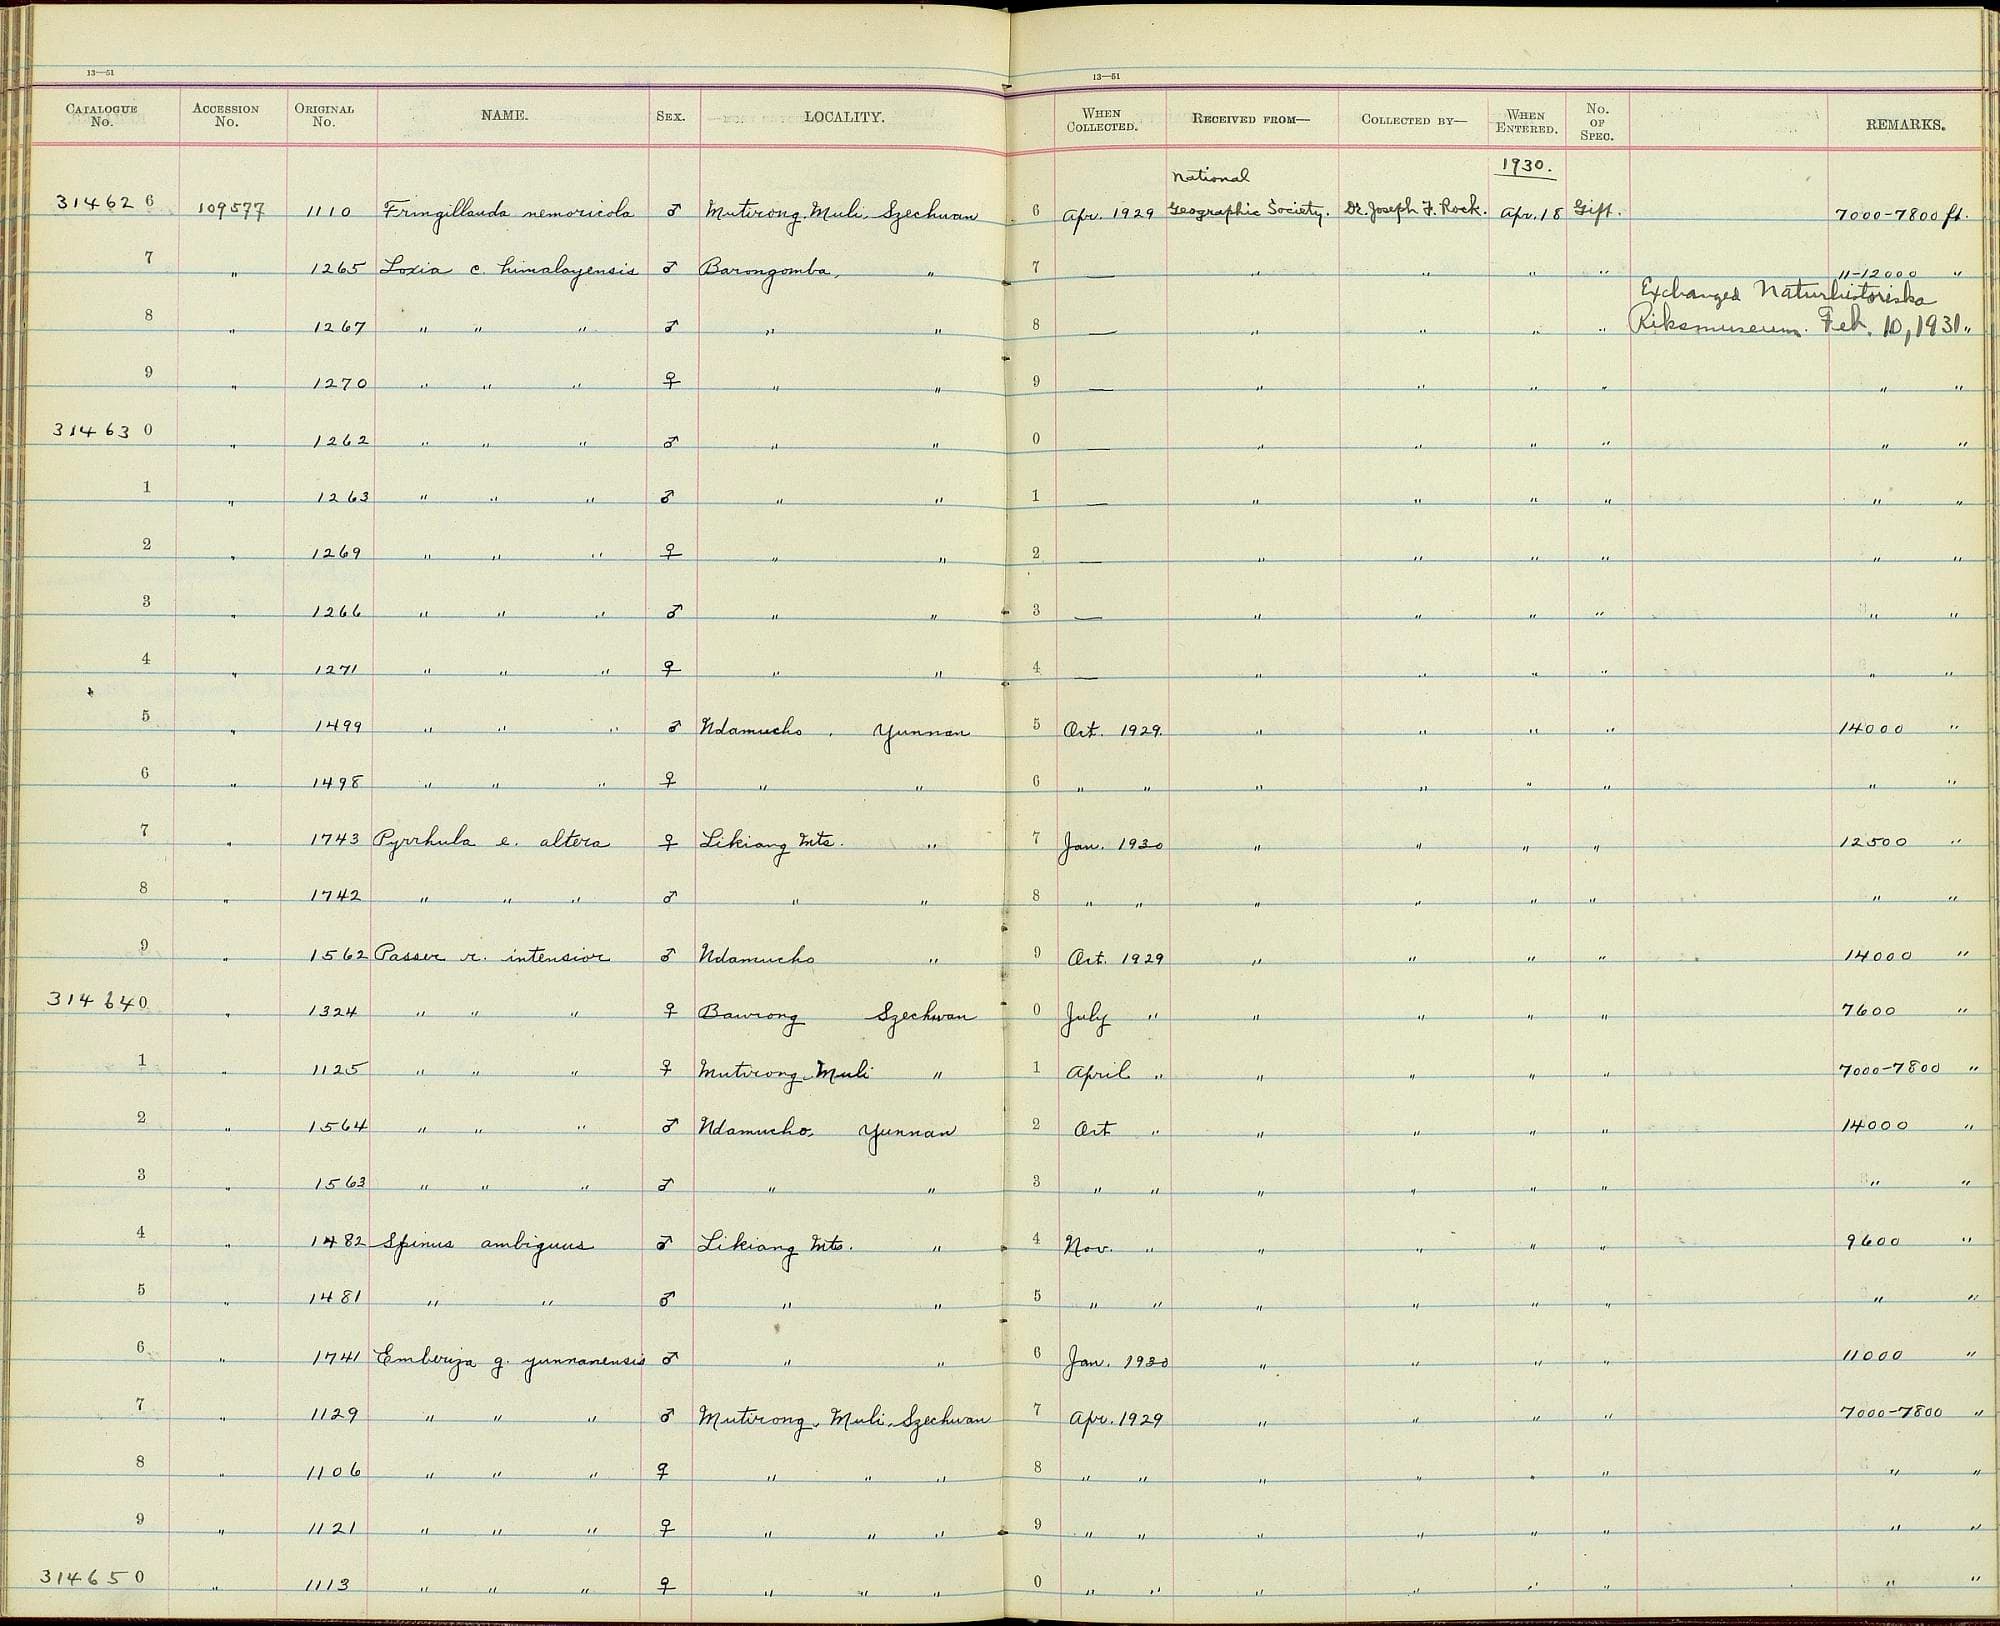 13—51
13—51
CATALOGUE No. ACCESSION No. ORIGINAL No. NAME. SEX. LOCALITY. WHEN COLLECTED. RECEIVED FROM— COLLECTED BY— WHEN ENTERED. NO. OF SPEC. REMARKS.
1930.
National
314626 109577 1110 Fringillauda nemoricola ♂ Mutirong, Muli, Szechwan 6 Apr. 1929 Geographic Society. Dr. Joseph F. Rock. Apr. 18 Gift. 7000-7800 ft.
7 " 1265 Loxia c. himalayensis ♂ Barongomba, " 7 — " " " " 11-12000 "
Exchanged Naturhistoriska
8 " 1267 " " " ♂ " " 8 — " " " " Riksmuseum. Feb. 10, 1931 "
9 " 1270 " " " ♀ " " 9 — " " " " " "
314630 " 1262 " " " ♂ " " 0 — " " " " " "
1 " 1263 " " " ♂ " " 1 — " " " " " "
2 " 1269 " " " ♀ " " 2 — " " " " " "
3 " 1266 " " " ♂ " " 3 — " " " " " "
4 " 1271 " " " ♀ " " 4 — " " " " " "
5 " 1499 " " " ♂ Ndamucho, Yunnan 5 Oct. 1929. " " " " 14000 "
6 " 1498 " " " ♀ " " 6 " " " " " " " "
7 " 1743 Pyrrhula e. altera ♀ Likiang Mts. " 7 Jan. 1930 " " " " 12500 "
8 " 1742 " " " ♂ " " 8 " " " " " " " "
9 " 1562 Passer r. intensior ♂ Ndamucho " 9 Oct. 1929 " " " " 14000 "
314640 " 1324 " " " ♀ Bawrong Szechwan 0 July " " " " " 7600 "
1 " 1125 " " " ♀ Mutirong, Muli " 1 April " " " " " 7000-7800 "
2 " 1564 " " " ♂ Ndamucho, Yunnan 2 Oct " " " " " 14000 "
3 " 1563 " " " ♂ " " 3 " " " " " " " "
4 " 1482 Spinus ambiguus ♂ Likiang Mts. " 4 Nov. " " " " " 9600 "
5 " 1481 " " ♂ " " 5 " " " " " " " "
6 " 1741 Emberiza g. yunnanensis ♂ " " 6 Jan. 1930 " " " " 11000 "
7 " 1129 " " " ♂ Mutirong, Muli, Szechwan 7 Apr. 1929 " " " " 7000-7800 "
8 " 1106 " " " ♀ " " " 8 " " " " " " " "
9 " 1121 " " " ♀ " " " 9 " " " " " " " "
314650 " 1113 " " " ♀ " " " 0 " " " " " " " "